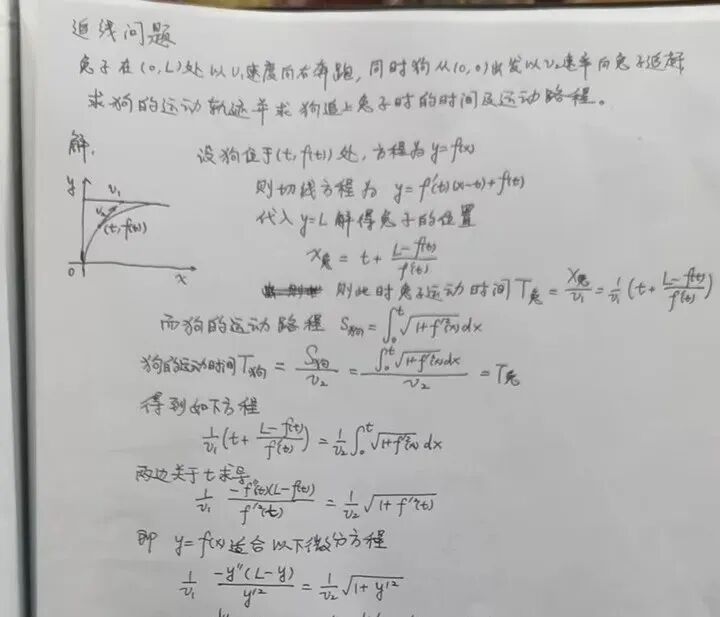 追线问题
兔子在(0,L)处以v₁速度向右奔跑,同时狗从(0,0)出发以v₂速率向兔子追赶,
求狗的运动轨迹并求狗追上兔子时的时间及运动路程。
解.
设狗位于(t,f(t))处,方程为y=f(x)
则切线方程为 y=f'(t)(x-t)+f(t)
代入y=L解得兔子的位置
x兔 = t + (L-f(t))/f'(t)
则此时兔子运动时间T兔 = x兔/v₁ = 1/v₁ (t + (L-f(t))/f'(t))
y v₁ v₂ (t,f(t)) 0 x
而狗的运动路程 S狗 = ∫₀ᵗ √(1+f'²(x)) dx
狗的运动时间T狗 = S狗/v₂ = ∫₀ᵗ √(1+f'²(x)) dx / v₂ = T兔
得到如下方程
1/v₁ (t + (L-f(t))/f'(t)) = 1/v₂ ∫₀ᵗ √(1+f'²(x)) dx
两边关于t求导
1/v₁ · -f''(t)(L-f(t))/f'²(t) = 1/v₂ √(1+f'²(t))
即 y=f(x)适合以下微分方程
1/v₁ · -y''(L-y)/y'² = 1/v₂ √(1+y'²)